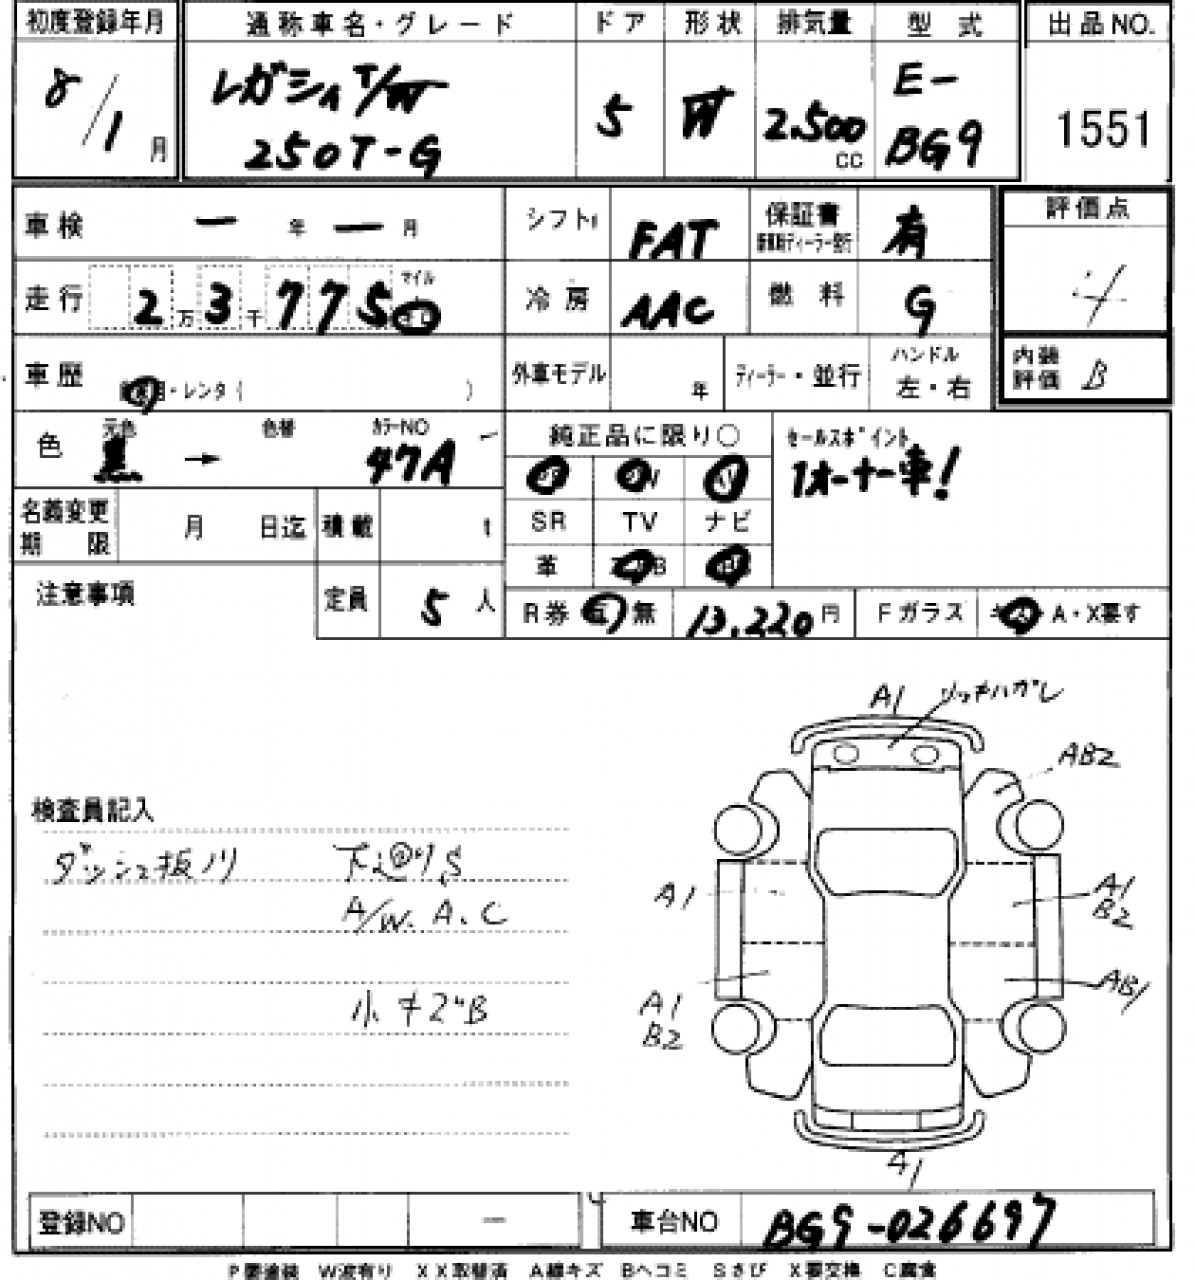 初度登録年月 通称車名・グレード ドア 形状 排気量 型式 出品NO.
8/1月 レガシィ T/W 5 W 2.500 CC E- 1551
250T-G BG9
車検 ー 年 ー 月 シフト FAT 保証書 有 評価点
走行 2万3千775 マイル 冷房 AAC 燃料 G 4
車歴 ・レンタ( ) 外車モデル 年 ディーラー・並行 ハンドル 左・右 内装評価 B
色 元色 黒 → 色替 カラーNO 47A 純正品に限り○ セールスポイント
1オーナー車!
名義変更期限 月 日迄 積載 t SR TV ナビ
革
注意事項 定員 5人 R券 無 13,220円 Fガラス A・X要す
A1 リップキハガレ
AB2
検査員記入
ダッシュ板ノリ 下廻りS
A/W. A. C
A1
A1
B2
小キズB
A1
B2
AB1
A1
登録NO ー 車台NO BG9-026697
P要塗装 W波有り XX取替済 A線キズ Bヘコミ Sさび X要交換 C腐食